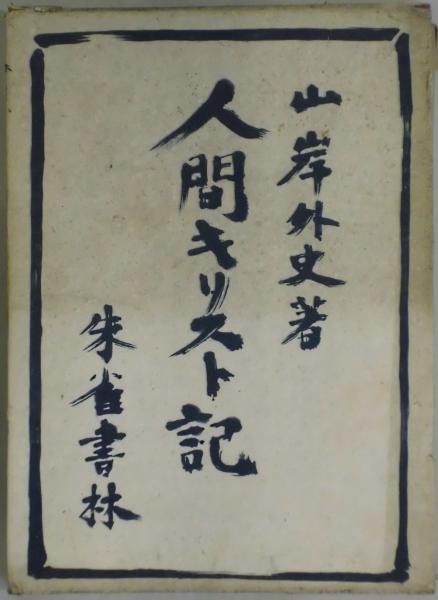 山岸外史著
人間キリスト記
朱雀書林